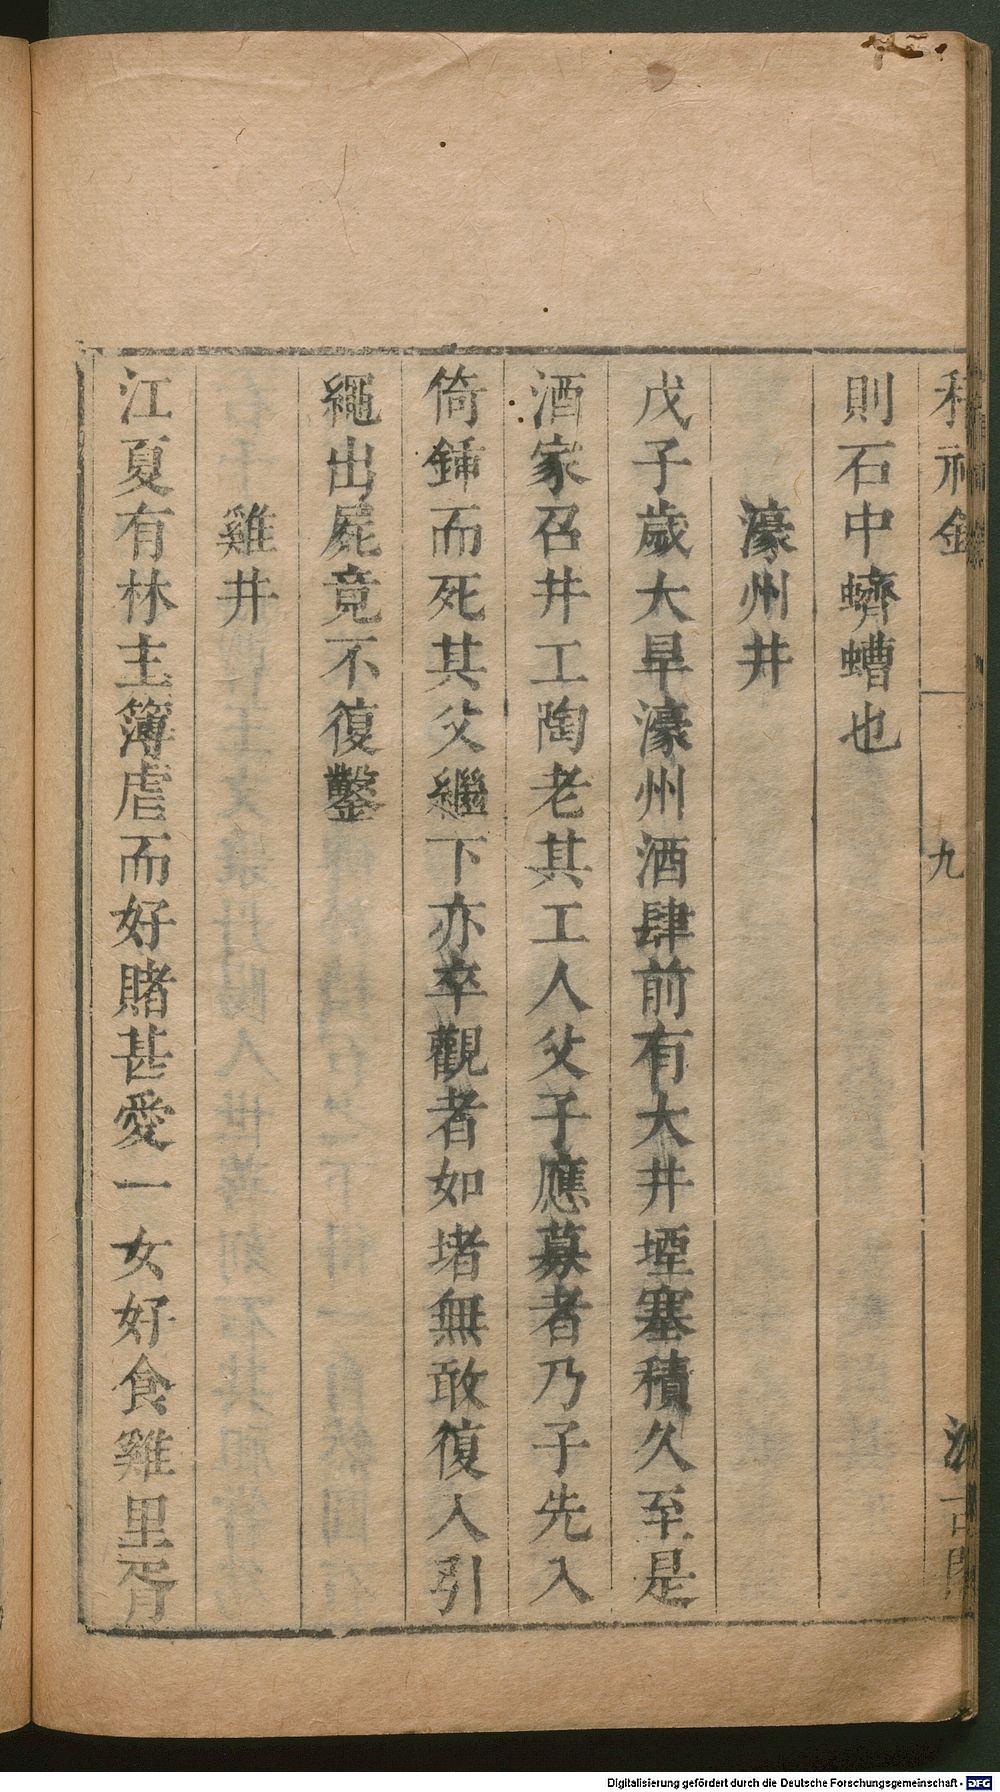 則石中蠐螬也
濠州井
戊子歲大旱濠州酒肆前有大井堙塞積久至是
酒家召井工陶老其工人父子應募者乃子先入
倚鍤而死其父繼下亦卒觀者如堵無敢復入引
繩出屍竟不復鑿
雞井
江夏有林主簿虐而好賭甚愛一女好食雞里胥
九
Digitalisierung gefördert durch die Deutsche Forschungsgemeinschaft - DFG